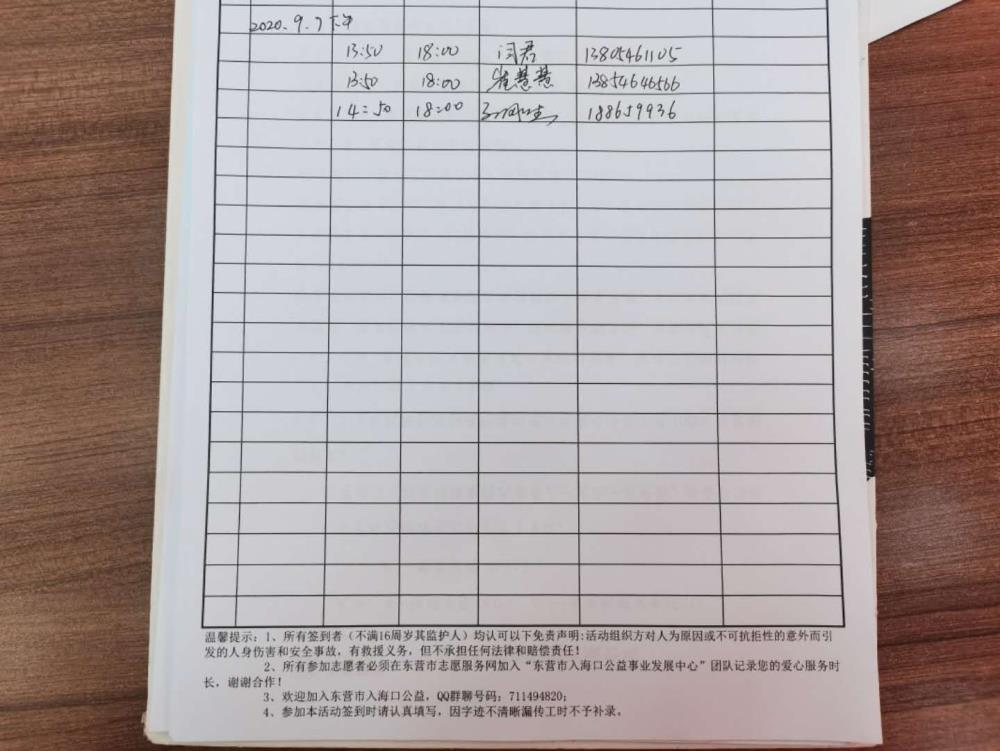 2020.9.7下午
13:50 18:00 闫君 13805461105
13:50 18:00 崔慧慧 13854646566
14:50 18:00 188659936
温馨提示：1、所有签到者（不满16周岁其监护人）均认可以下免责声明:活动组织方对人为原因或不可抗拒性的意外而引
发的人身伤害和安全事故，有救援义务，但不承担任何法律和赔偿责任！
2、所有参加志愿者必须在东营市志愿服务网加入“东营市入海口公益事业发展中心”团队记录您的爱心服务时
长，谢谢合作！
3、欢迎加入东营市入海口公益，QQ群聊号码：711494820；
4、参加本活动签到时请认真填写，因字迹不清晰漏传工时不予补录。